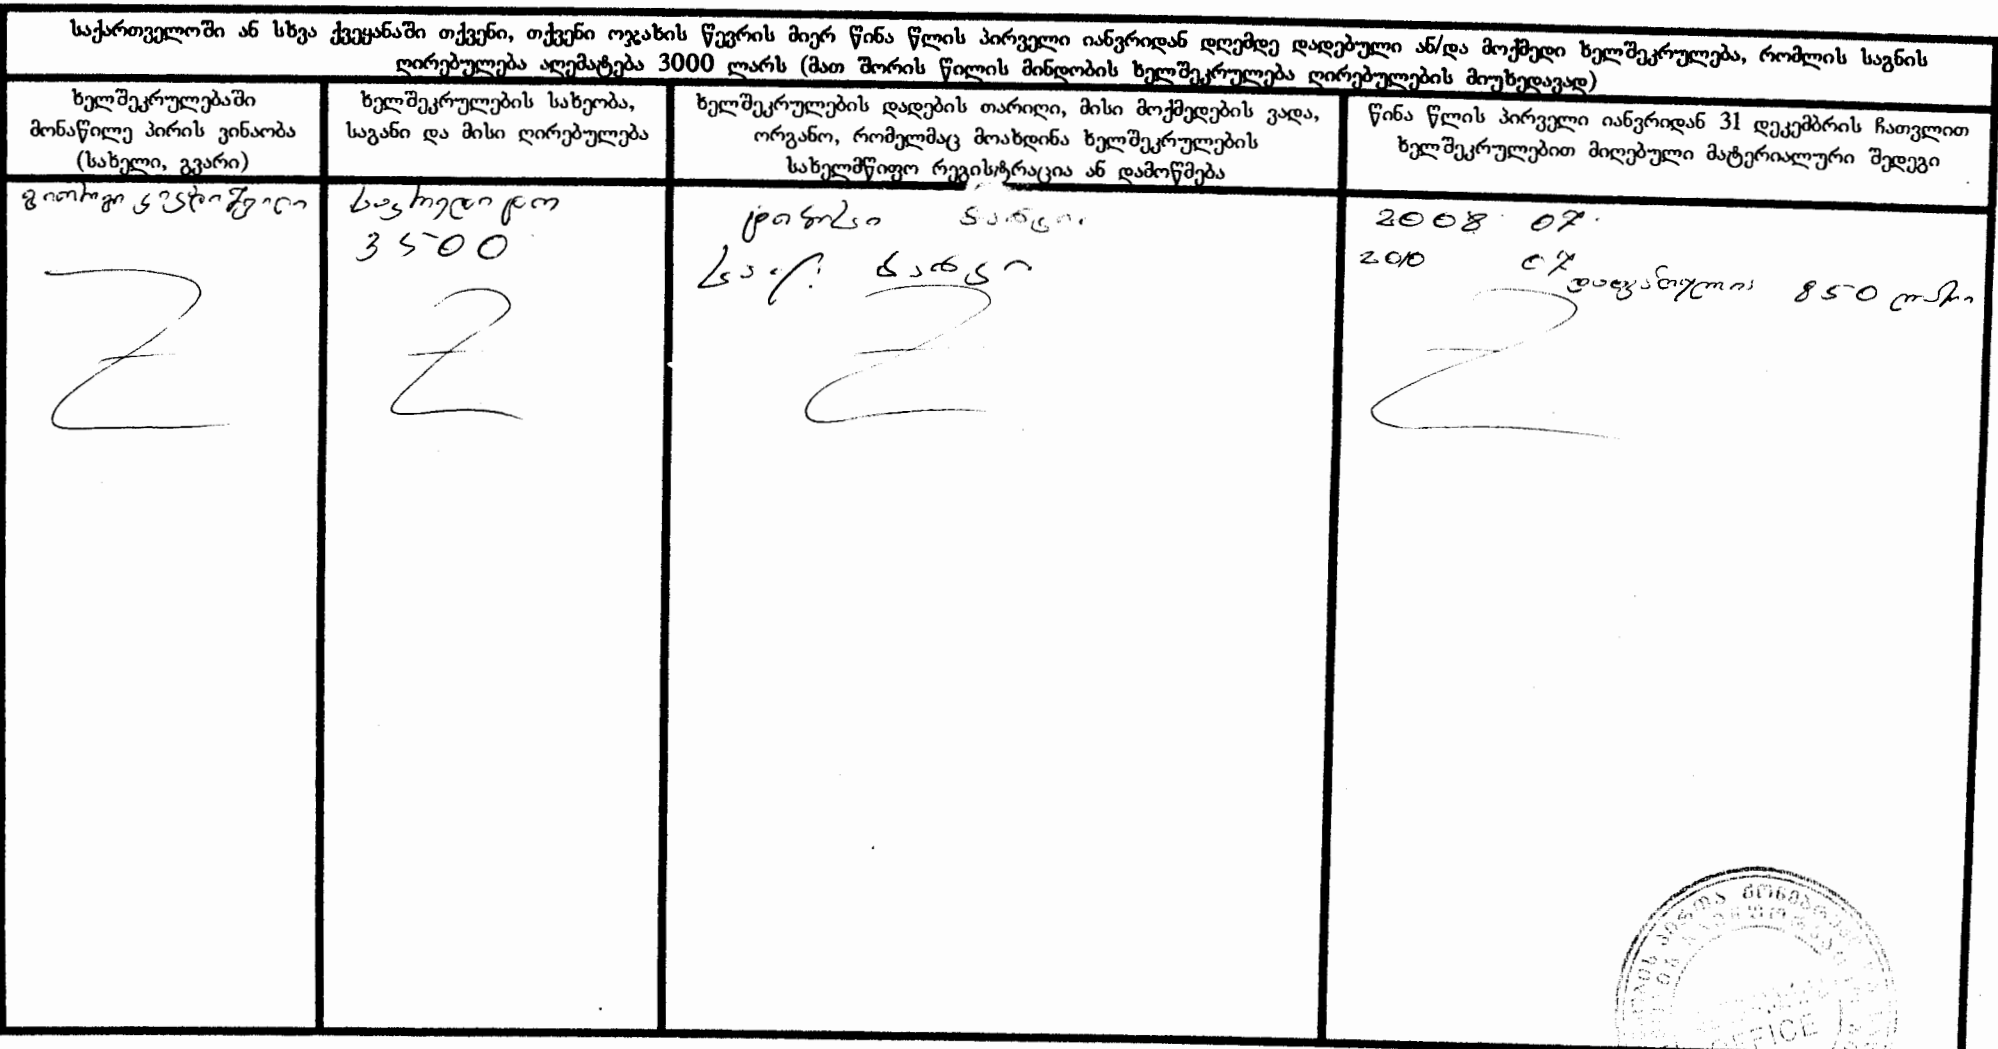 საქართველოში ან სხვა ქვეყანაში თქვენი, თქვენი ოჯახის წევრის მიერ წინა წლის პირველი იანვრიდან დღემდე დადებული ან/და მოქმედი ხელშეკრულება, რომლის საგნის
ღირებულება აღემატება 3000 ლარს (მათ შორის წილის მინდობის ხელშეკრულება ღირებულების მიუხედავად)
ხელშეკრულებაში
მონაწილე პირის ვინაობა
(სახელი, გვარი)
ხელშეკრულების სახეობა,
საგანი და მისი ღირებულება
ხელშეკრულების დადების თარიღი, მისი მოქმედების ვადა,
ორგანო, რომელმაც მოახდინა ხელშეკრულების
სახელმწიფო რეგისტრაცია ან დამოწმება
წინა წლის პირველი იანვრიდან 31 დეკემბრის ჩათვლით
ხელშეკრულებით მიღებული მატერიალური შედეგი
გიორგი
საკრედიტო
3500
ბანკი
2008 07
2010 07
850 ლარი
OFFICE